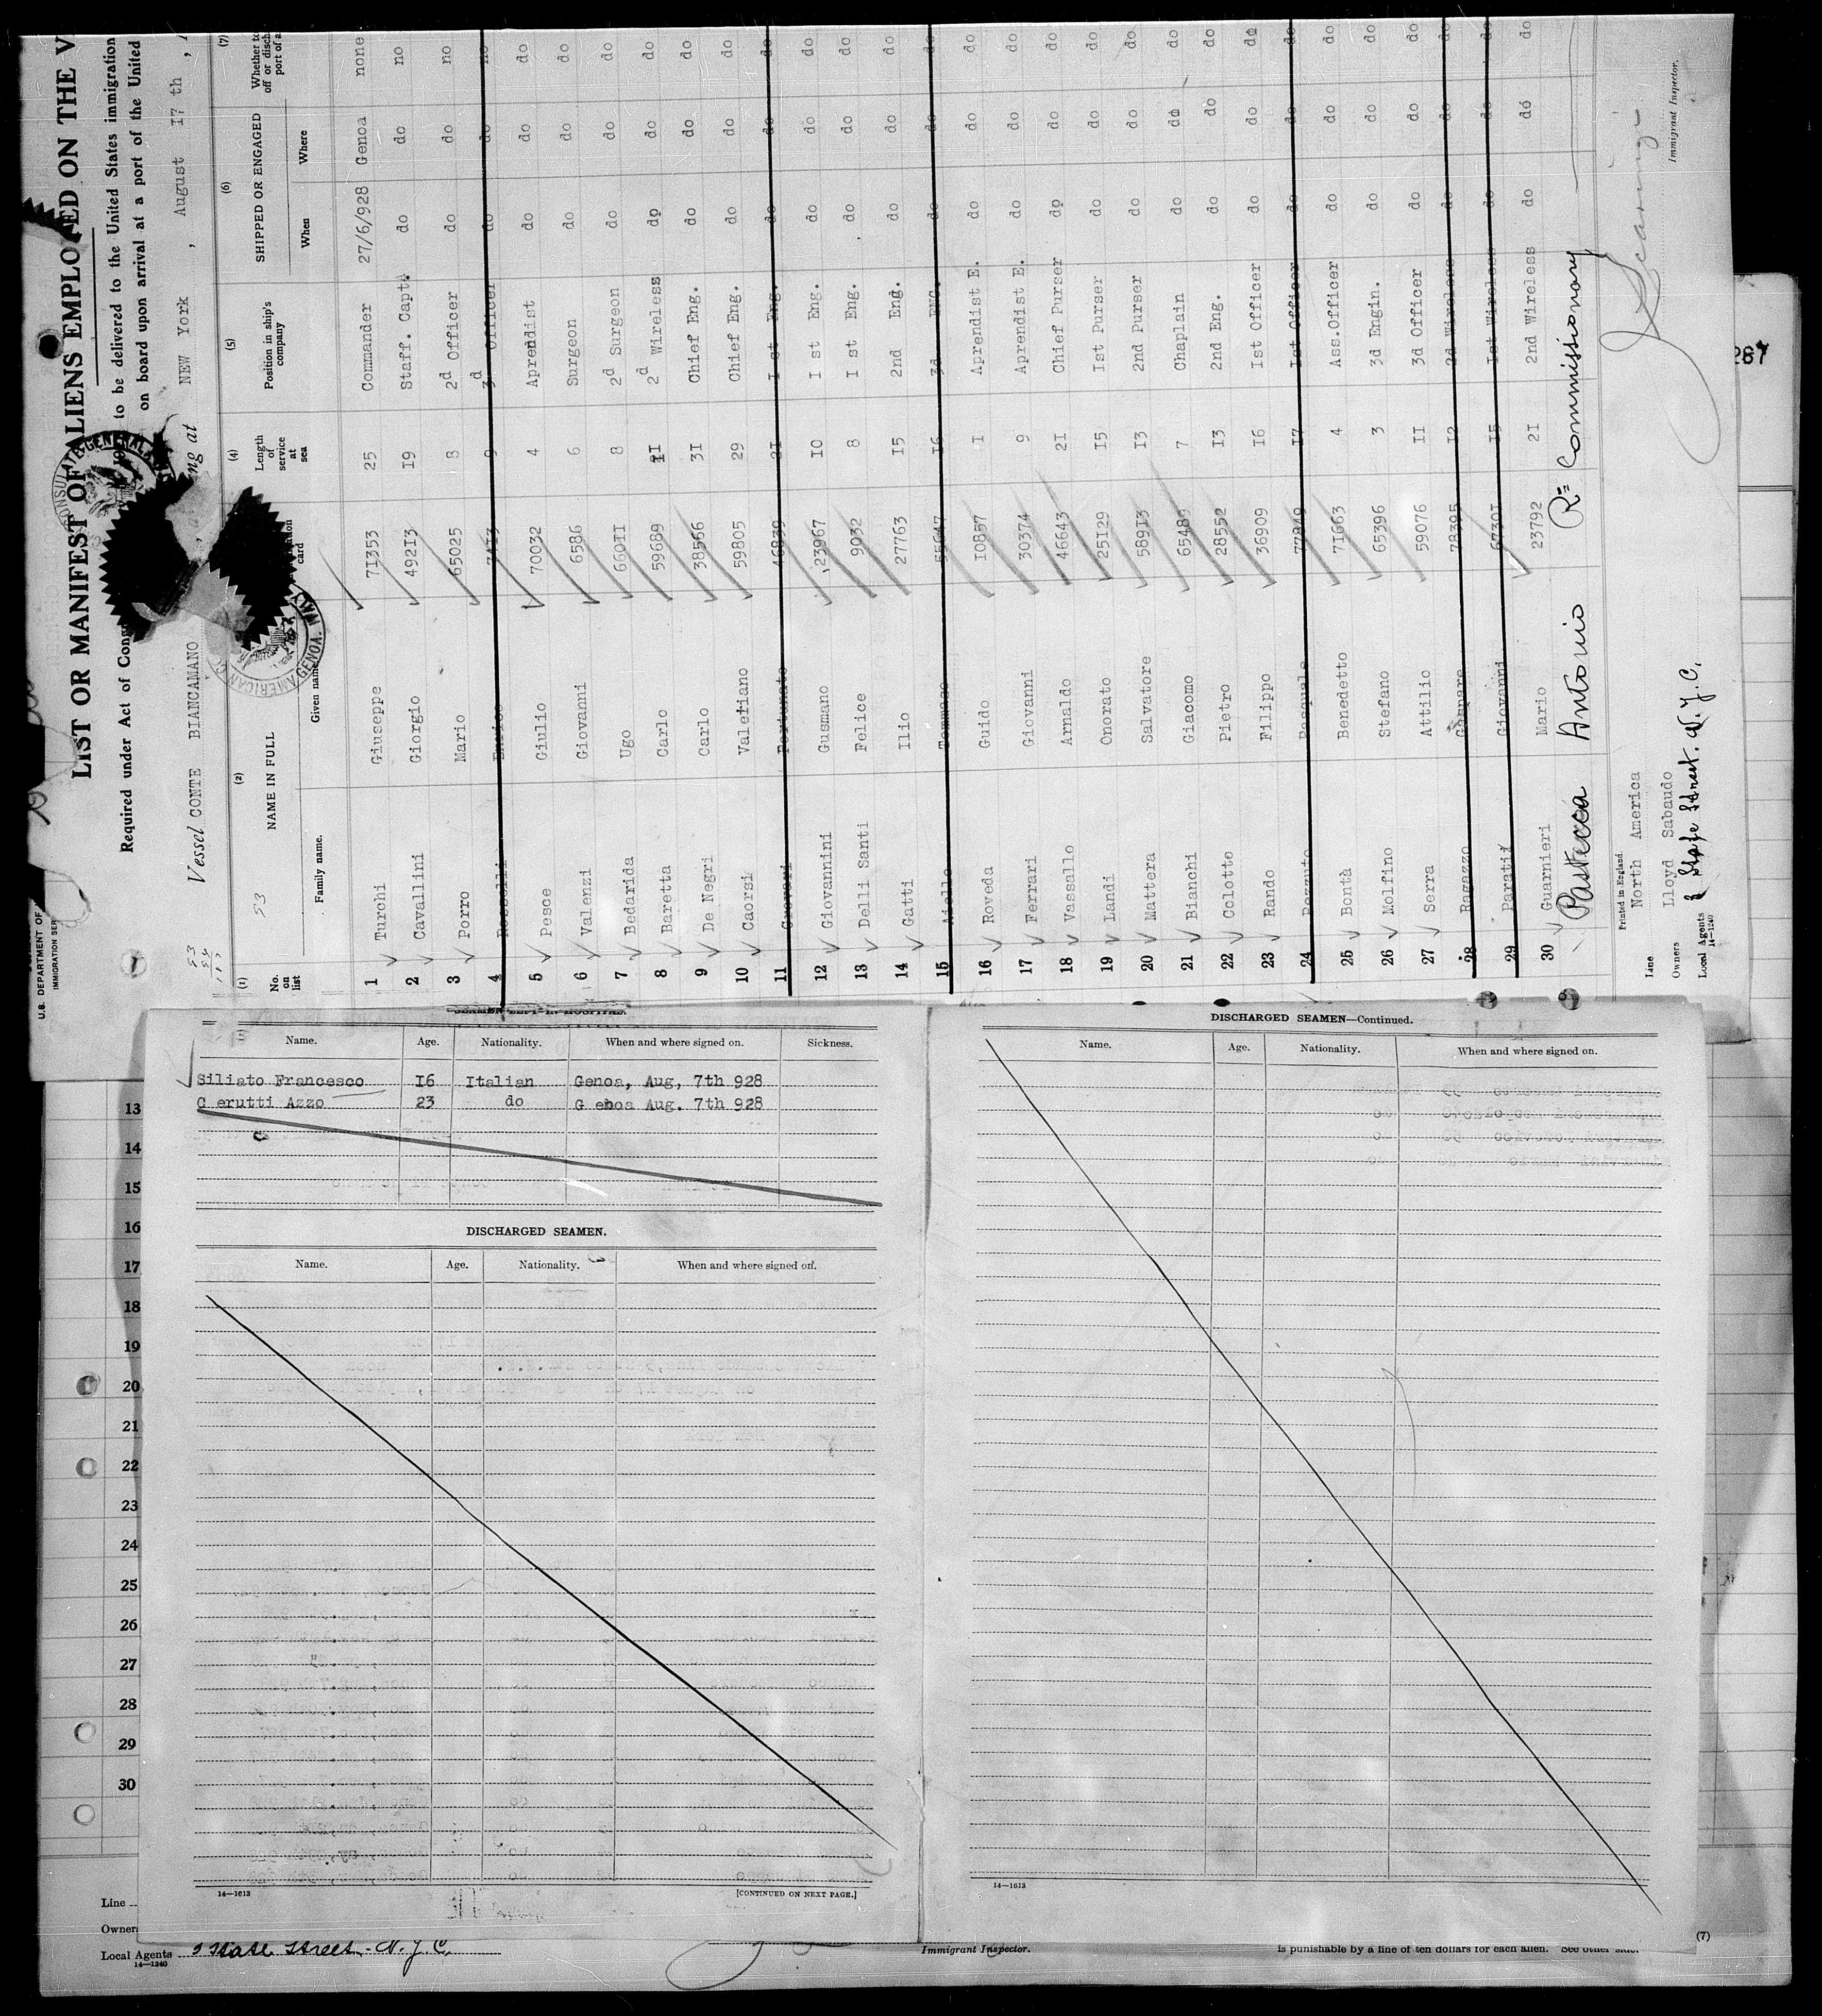 U.S. DEPARTMENT OF
IMMIGRATION SER
LIST OR MANIFEST OF ALIENS EMPLOYED ON THE V
Required under Act of Congr to be delivered to the United States immigration
on board upon arrival at a port of the United
Vessel CONTE BIANCAMANO ng at NEW York , August I7 th ,
53
(1) (2) (4) (5) (6) (7)
No. on list NAME IN FULL Length of service at sea Position in ship's company SHIPPED OR ENGAGED
Family name. Given name card When Where
1 Turchi Giuseppe 71353 25 Commander 27/6/928 Genoa none
2 Cavallini Giorgio 492I3 I9 Staff. Capt. do do no
3 Porro Mario 65025 8 2d Officer do do no
4 9 3d Officer do do no
5 Pesce Giulio 70032 4 Aprendist do do do
6 Valenzi Giovanni 6586 6 Surgeon do do do
7 Bedarida Ugo 660II 8 2d Surgeon do do do
8 Baretta Carlo 59689 2d Wireless do do do
9 De Negri Carlo 38566 3I Chief Eng. do do do
10 Caorsi Valefiano 59805 29 Chief Eng. do do do
11 Fortunato 46839 2I I st Eng. do do do
12 Giovannini Gusmano 23967 IO I st Eng. do do do
13 Delli Santi Felice 9032 8 I st Eng. do do do
14 Gatti Ilio 27763 I5 2nd Eng. do do do
15 Aiello Tommaso 55647 I6 3d ENG. do do do
16 Roveda Guido I0857 I Aprendist E. do do do
17 Ferrari Giovanni 30374 9 Aprendist E. do do do
18 Vassallo Arnaldo 46643 2I Chief Purser do do do
19 Landi Onorato 25I29 I5 Ist Purser do do do
20 Mattera Salvatore 589I3 I3 2nd Purser do do do
21 Bianchi Giacomo 65489 7 Chaplain do do do
22 Colotto Pietro 28552 I3 2nd Eng. do do do
23 Rando Filippo 36909 I6 Ist Officer do do do
24 Pezzuto Pasquale 77949 I7 Ist Officer do do do
25 Bontà Benedetto 7I663 4 Ass.Officer do do do
26 Molfino Stefano 65396 3 3d Engin. do do do
27 Serra Attilio 59076 II 3d Officer do do do
28 Ragazzo Gaspare 78395 I2 2d Wireless do do do
29 Parati Giovanni 6730I I5 Ist Wireless do do do
30 Guarnieri Mario 23792 2I 2nd Wireless do do do
Pastecca Antonio R= Commissionary
Printed in England.
Line North America
Owners Lloyd Sabaudo
Local Agents 3 State Street. N.Y.C.
14—1240
Immigrant Inspector.
287
SEAMEN LEFT IN HOSPITAL.
Name. Age. Nationality. When and where signed on. Sickness.
Siliato Francesco I6 Italian Genoa, Aug, 7th 928
C erutti Azzo 23 do G enoa Aug. 7th 928
DISCHARGED SEAMEN.
Name. Age. Nationality. When and where signed on.
14—1613 [CONTINUED ON NEXT PAGE.]
DISCHARGED SEAMEN—Continued.
Name. Age. Nationality. When and where signed on.
14—1613
(7)
13
14
15
16
17
18
19
20
21
22
23
24
25
26
27
28
29
30
Line
Owner
Local Agents 3 State Street - N.Y.C.
14—1240
Immigrant Inspector.
is punishable by a fine of ten dollars for each alien. See other side.